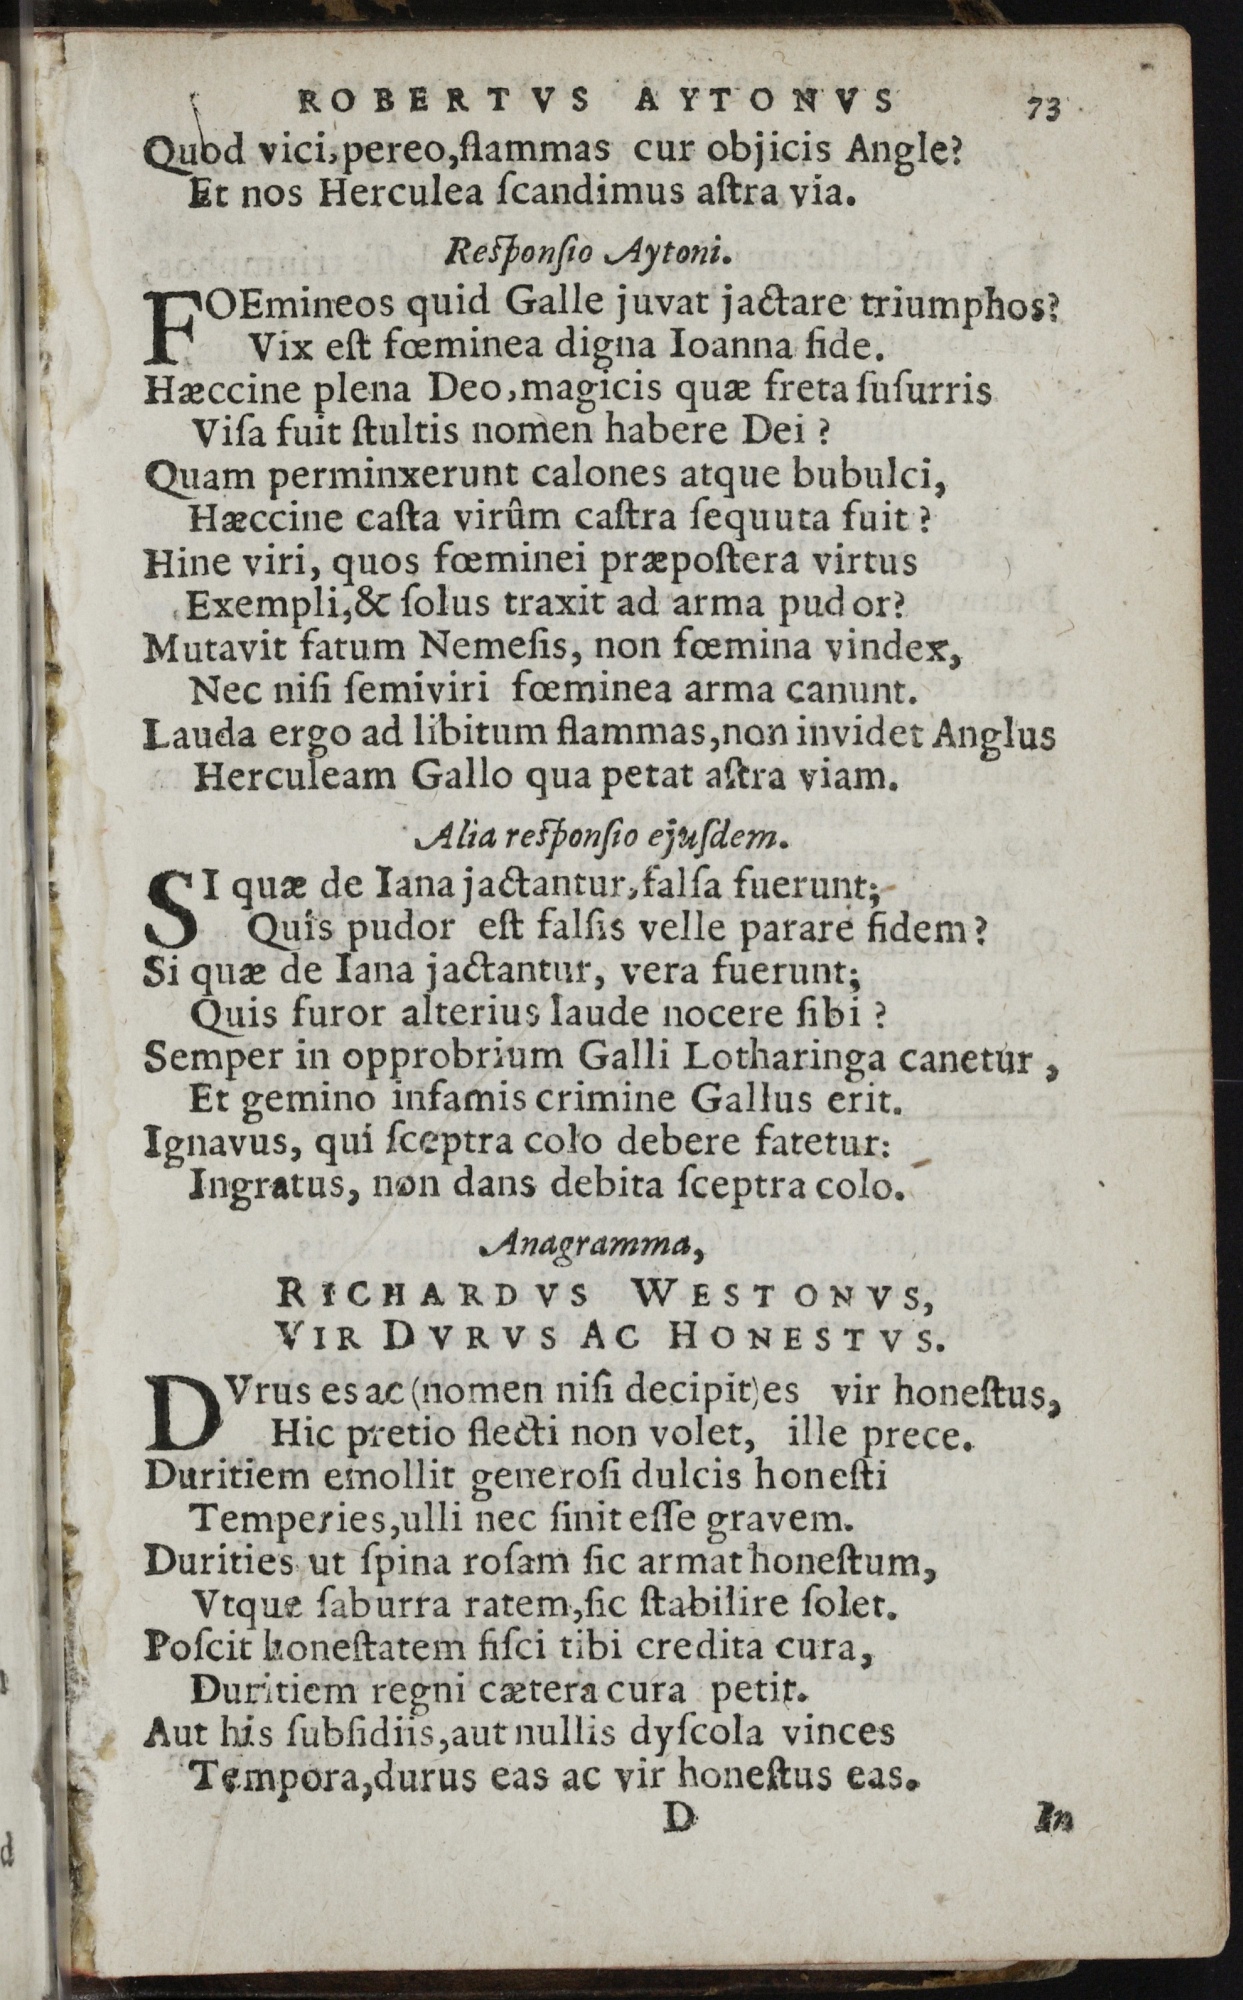 ROBERTVS AYTONVS 73
Quod vici, pereo, flammas cur objicis Angle?
Et nos Herculea ſcandimus aſtra via.
Reſponſio Aytoni.
FOEmineos quid Galle juvat jactare triumphos?
Vix eſt fœminea digna Ioanna fide.
Hæccine plena Deo, magicis quæ freta ſuſurris
Viſa fuit ſtultis nomen habere Dei ?
Quam perminxerunt calones atque bubulci,
Hæccine caſta virûm caſtra ſequuta fuit ?
Hine viri, quos fœminei præpoſtera virtus
Exempli, & ſolus traxit ad arma pudor?
Mutavit fatum Nemeſis, non fœmina vindex,
Nec niſi ſemiviri fœminea arma canunt.
Lauda ergo ad libitum flammas, non invidet Anglus
Herculeam Gallo qua petat aſtra viam.
Alia reſponſio ejuſdem.
SI quæ de Iana jactantur, falſa fuerunt;
Quis pudor eſt falſis velle parare fidem?
Si quæ de Iana jactantur, vera fuerunt;
Quis furor alterius laude nocere ſibi ?
Semper in opprobrium Galli Lotharinga canetur ,
Et gemino infamis crimine Gallus erit.
Ignavus, qui ſceptra colo debere fatetur:
Ingratus, non dans debita ſceptra colo.
Anagramma,
RICHARDVS WESTONVS,
VIR DVRVS AC HONESTVS.
DVrus es ac (nomen niſi decipit) es vir honeſtus,
Hic pretio flecti non volet, ille prece.
Duritiem emollit generoſi dulcis honeſti
Temperies, ulli nec ſinit eſſe gravem.
Durities ut ſpina roſam ſic armat honeſtum,
Vtque ſaburra ratem, ſic ſtabilire ſolet.
Poſcit honeſtatem fiſci tibi credita cura,
Duritiem regni cætera cura petit.
Aut his ſubſidiis, aut nullis dyſcola vinces
Tempora, durus eas ac vir honeſtus eas.
D In
d